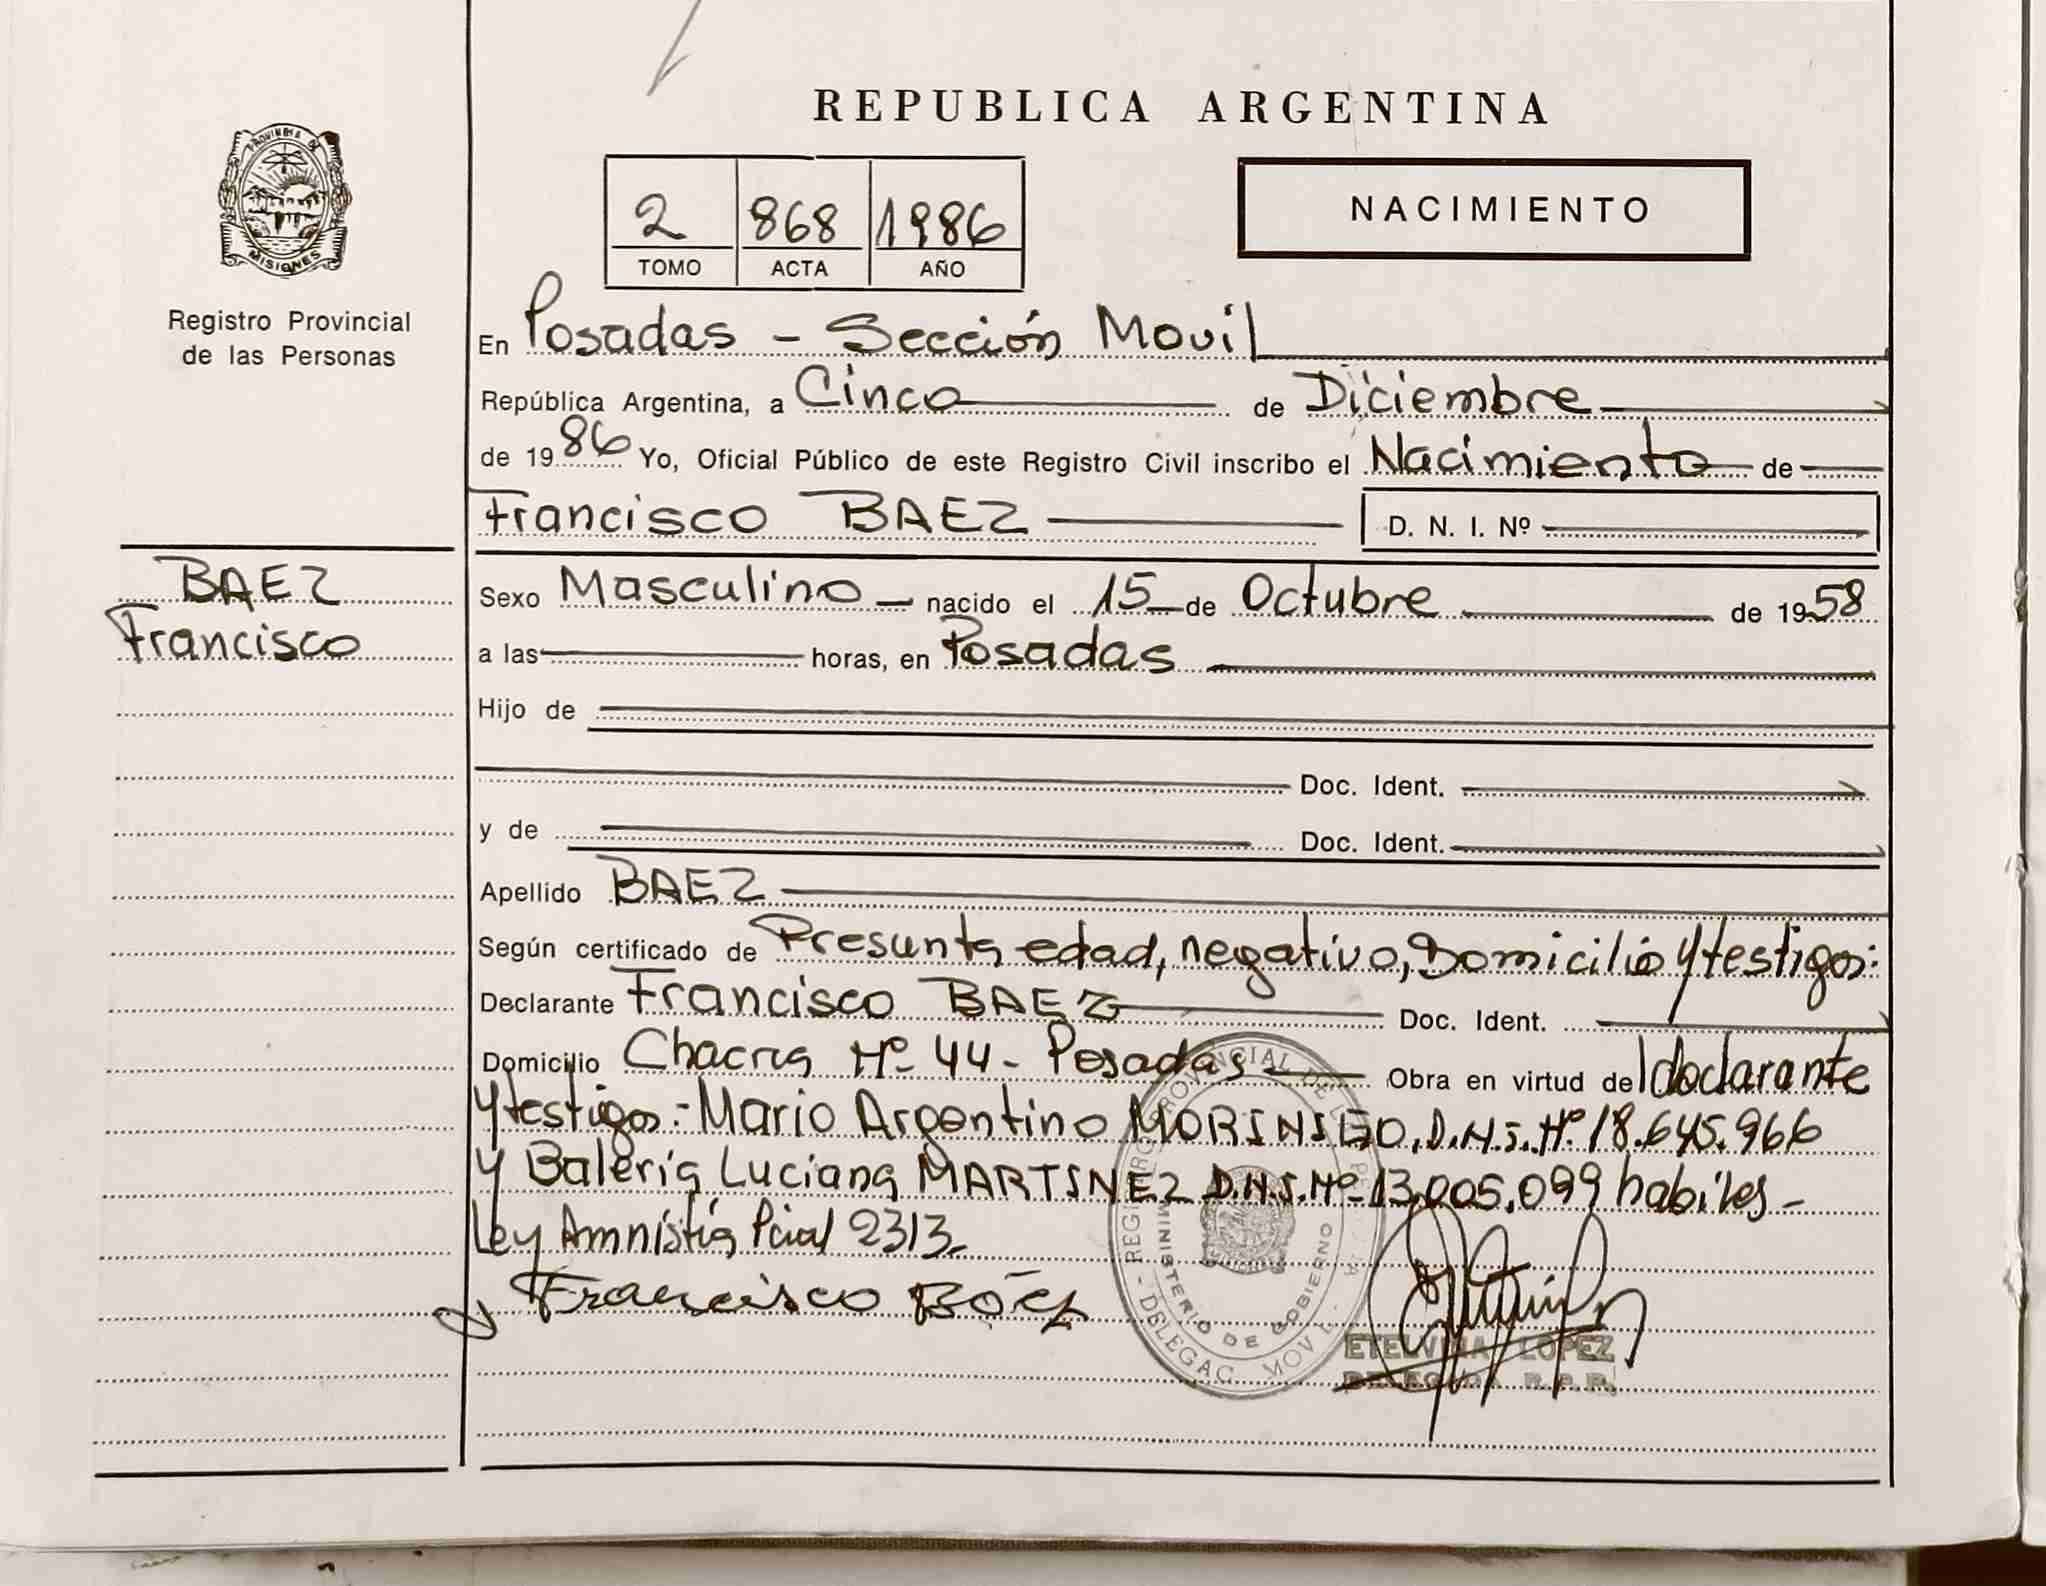 REPUBLICA ARGENTINA
PROVINCIA DE
MISIONES
Registro Provincial
de las Personas
2 868 1986
TOMO ACTA AÑO
NACIMIENTO
En Posadas - Sección Movil
República Argentina, a Cinco de Diciembre
de 1986 Yo, Oficial Público de este Registro Civil inscribo el Nacimiento de
Francisco BAEZ D. N. I. Nº
BAEZ
Francisco
Sexo Masculino nacido el 15 de Octubre de 1958
a las horas, en Posadas
Hijo de
Doc. Ident.
y de Doc. Ident.
Apellido BAEZ
Según certificado de Presunta edad, negativo, Domicilio y testigos:
Declarante Francisco BAEZ Doc. Ident.
Domicilio Chacra Nº 44 - Posadas Obra en virtud de declarante
y testigos: Mario Argentino D.N.I. Nº 18.645.966
y Baleria Luciana MARTINEZ D.N.I. Nº 13.005.099 habiles -
Ley Amnistia Pcial 2313.
Francisco Báez
REGISTRO PROVINCIAL DE L
MINISTERIO DE GOBIERNO
DELEGAC. MOVI
ETELVINA LOPEZ
R.P.P.